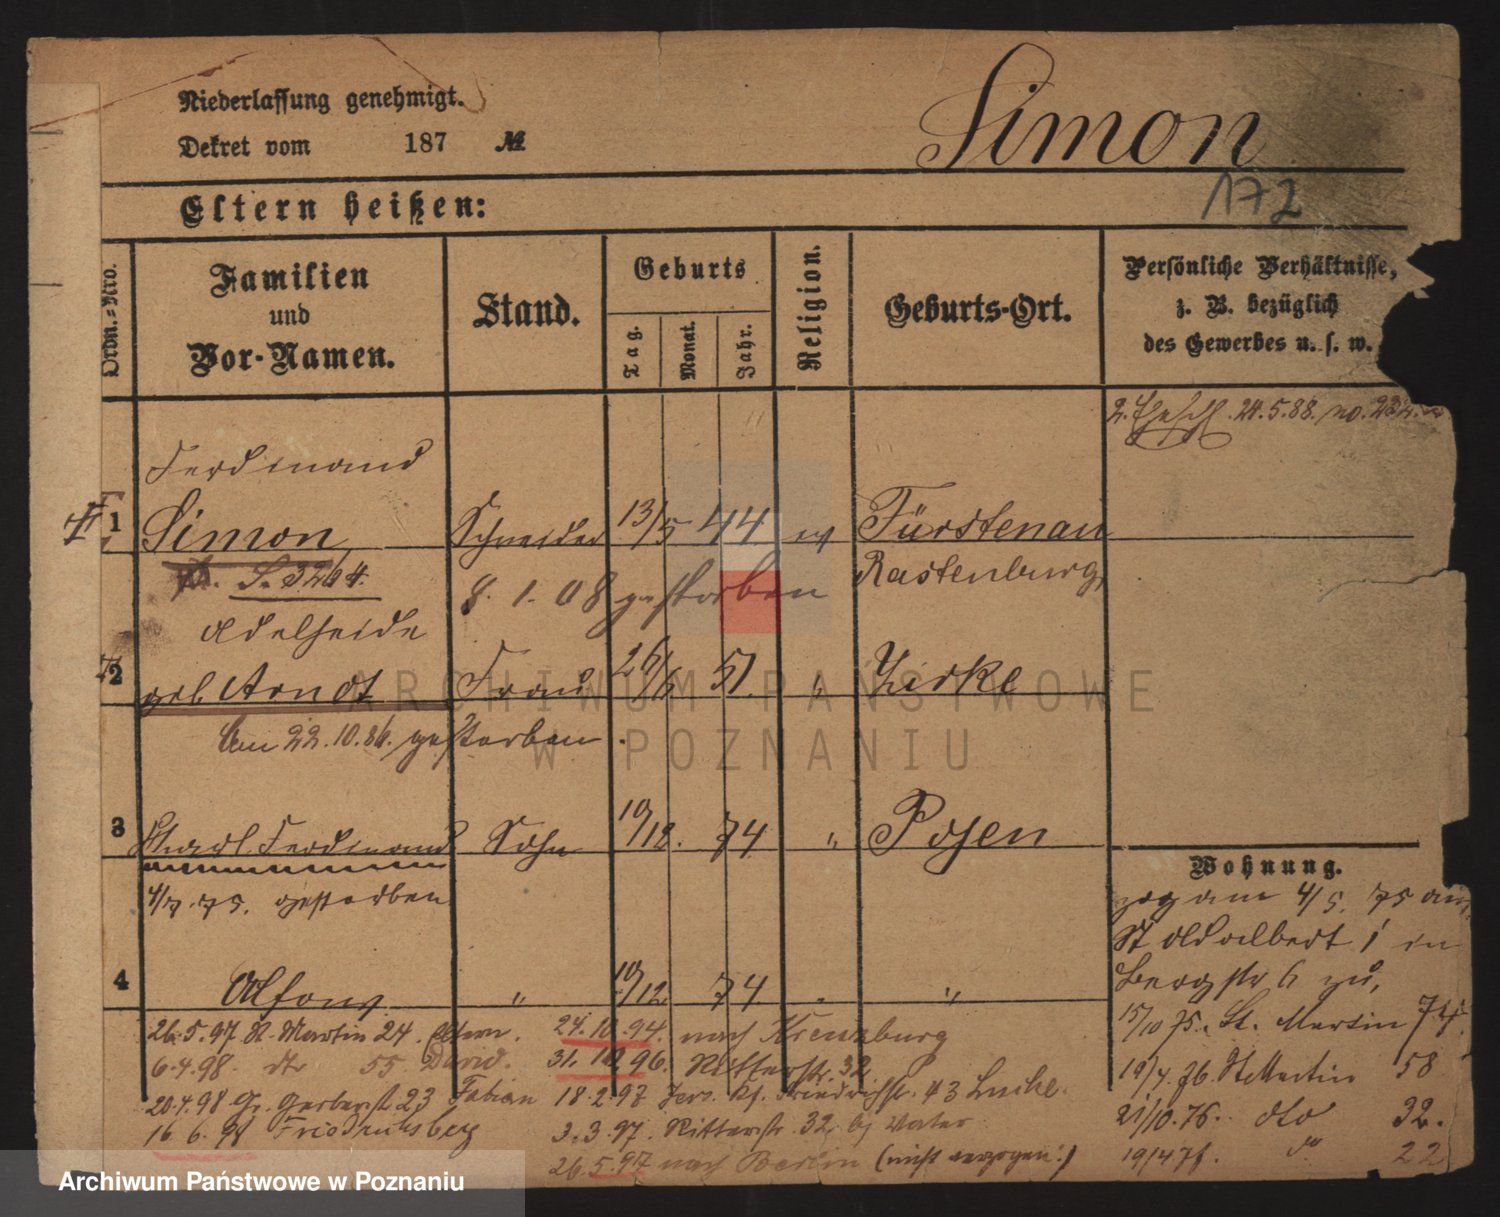 Niederlassung genehmigt.
Dekret vom 187 №
Simon
172
Eltern heißen:
Ordn.-Nro.
Familien
und
Vor-Namen.
Stand.
Geburts
Tag.
Monat.
Jahr.
Religion.
Geburts-Ort.
Persönliche Verhältnisse,
z. B. bezüglich
des Gewerbes u. s. w.
24.5.88. no.
Ferdinand
1 Simon Schneider 13/5 44 ev Fürstenau
S. 3264. Rastenburg
8. 1. 08 gestorben
Adelheide
2 geb Arndt Frau 26/6 51. " Zirke
Am 22.10.86. gestorben.
3 Ferdinand Sohn 10/12. 74 " Posen
4/7. 75. gestorben
4 Alfons " 10/12 74 "
Wohnung.
zog am 4/5. 75 aus
St Adalbert 1 in
Bergstr 6 zu,
15/10 75. St. Martin 74.
19/4. 76. St Martin 58
21/10. 76. dto 32.
19/4 78. do 22
26.5.97 St. Martin 24. Eltern.
6.4.98. dto 55
20.4.98 Gr. Gerberst 23 Fabian
16.6.98 Friedrichsberg
24.10.94. nach Kreuzburg
31. 12 96. Ritterstr. 32
18.2.97 Friedrichstr. 43
3.3.97. Ritterstr. 32, bei Vater
26.5.97 nach Berlin (nicht verzogen!)
ARCHIWUM PAŃSTWOWE
W POZNANIU
Archiwum Państwowe w Poznaniu